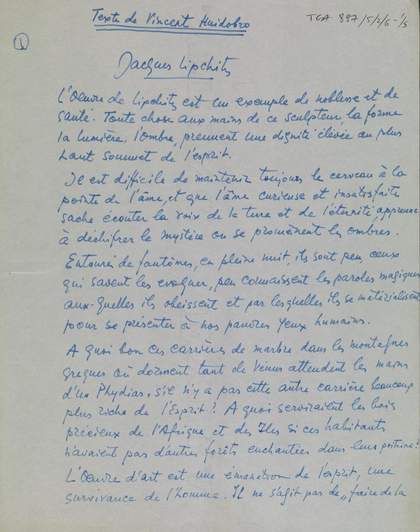 Texte de Vincent Huidobro
TGA 897/5/2/6-1/3
1
Jacques Lipchitz
L'Oeuvre de Lipchitz est un exemple de noblesse et de
santé. Toute chose aux mains de ce sculpteur, la forme
la lumière, l'ombre, prennent une dignité élevée au plus
haut sommet de l'esprit.
Il est difficile de maintenir toujours le cerveau à la
pointe de l'âme, et que l'âme curieuse et insatisfaite
sache écouter la voix de la terre et de l'éternité apprenne
à déchifrer le mystère ou se promènent les ombres.
Entourés de fantômes, en pleine nuit, ils sont peu ceux
qui savent les evoquer, peu connaissent les paroles magiques
aux-quelles ils obeissent et par lesquelles ils se matérialisent
pour se présenter à nos pauvres yeux humains.
A quoi bon ces carrières de marbre dans les montagnes
greques où dorment tant de Venus attendent les mains
d'un Phydias, s'il n'y a pas cette autre carrière beaucoup
plus riche de l'Esprit? A quoi serviraient les bois
précieux de l'Afrique et des Iles si ces habitants
n'avaient pas d'autres forêts enchantées dans leur poitrine?
L'Oeuvre d'art est une émanation de l'esprit, une
survivance de l'homme. Il ne s'agit pas de "faire de la